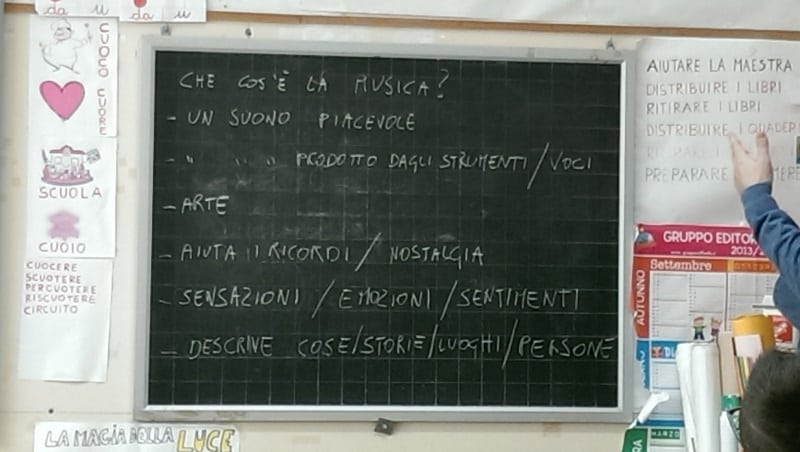 da u da u
CUOCO
CUORE
SCUOLA
CUOIO
CUOCERE
SCUOTERE
PERCUOTERE
RISCUOTERE
CIRCUITO
CHE COS'È LA MUSICA?
- UN SUONO PIACEVOLE
- " " " PRODOTTO DAGLI STRUMENTI/VOCI
- ARTE
- AIUTA II RICORDI / NOSTALGIA
- SENSAZIONI / EMOZIONI / SENTIMENTI
- DESCRIVE COSE/STORIE/LUOGHI/PERSONE
LA MAGIA DELLA LUCE
AIUTARE LA MAESTRA
DISTRIBUIRE I LIBRI
RITIRARE I LIBRI
DISTRIBUIRE I QUADER
PREPARARE
GRUPPO EDITOR
2013/
AUTUNNO
Settembre